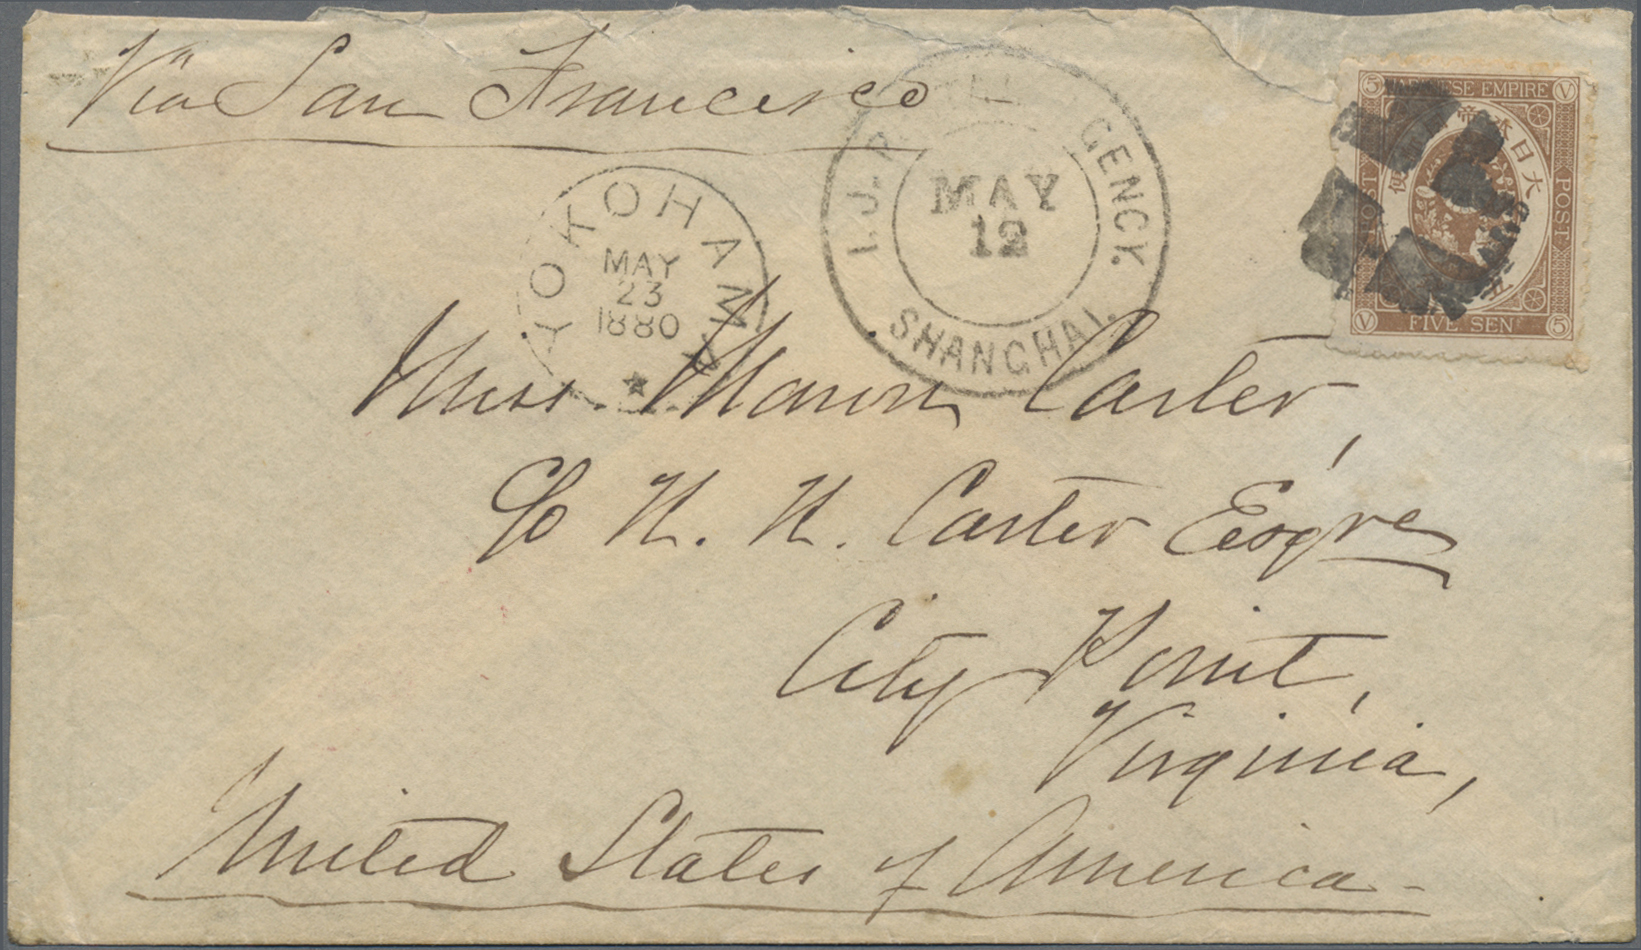 Via San Francisco
YOKOHAMA
MAY
23
1880
I.J. GENCY.
MAY
12
SHANGHAI.
5 JAPANESE EMPIRE V
POST
POST
大日本帝
V FIVE SEN 5
Miss Marion Carter,
c/o
Carter Esqre
City Point,
Virginia,
United States of America -